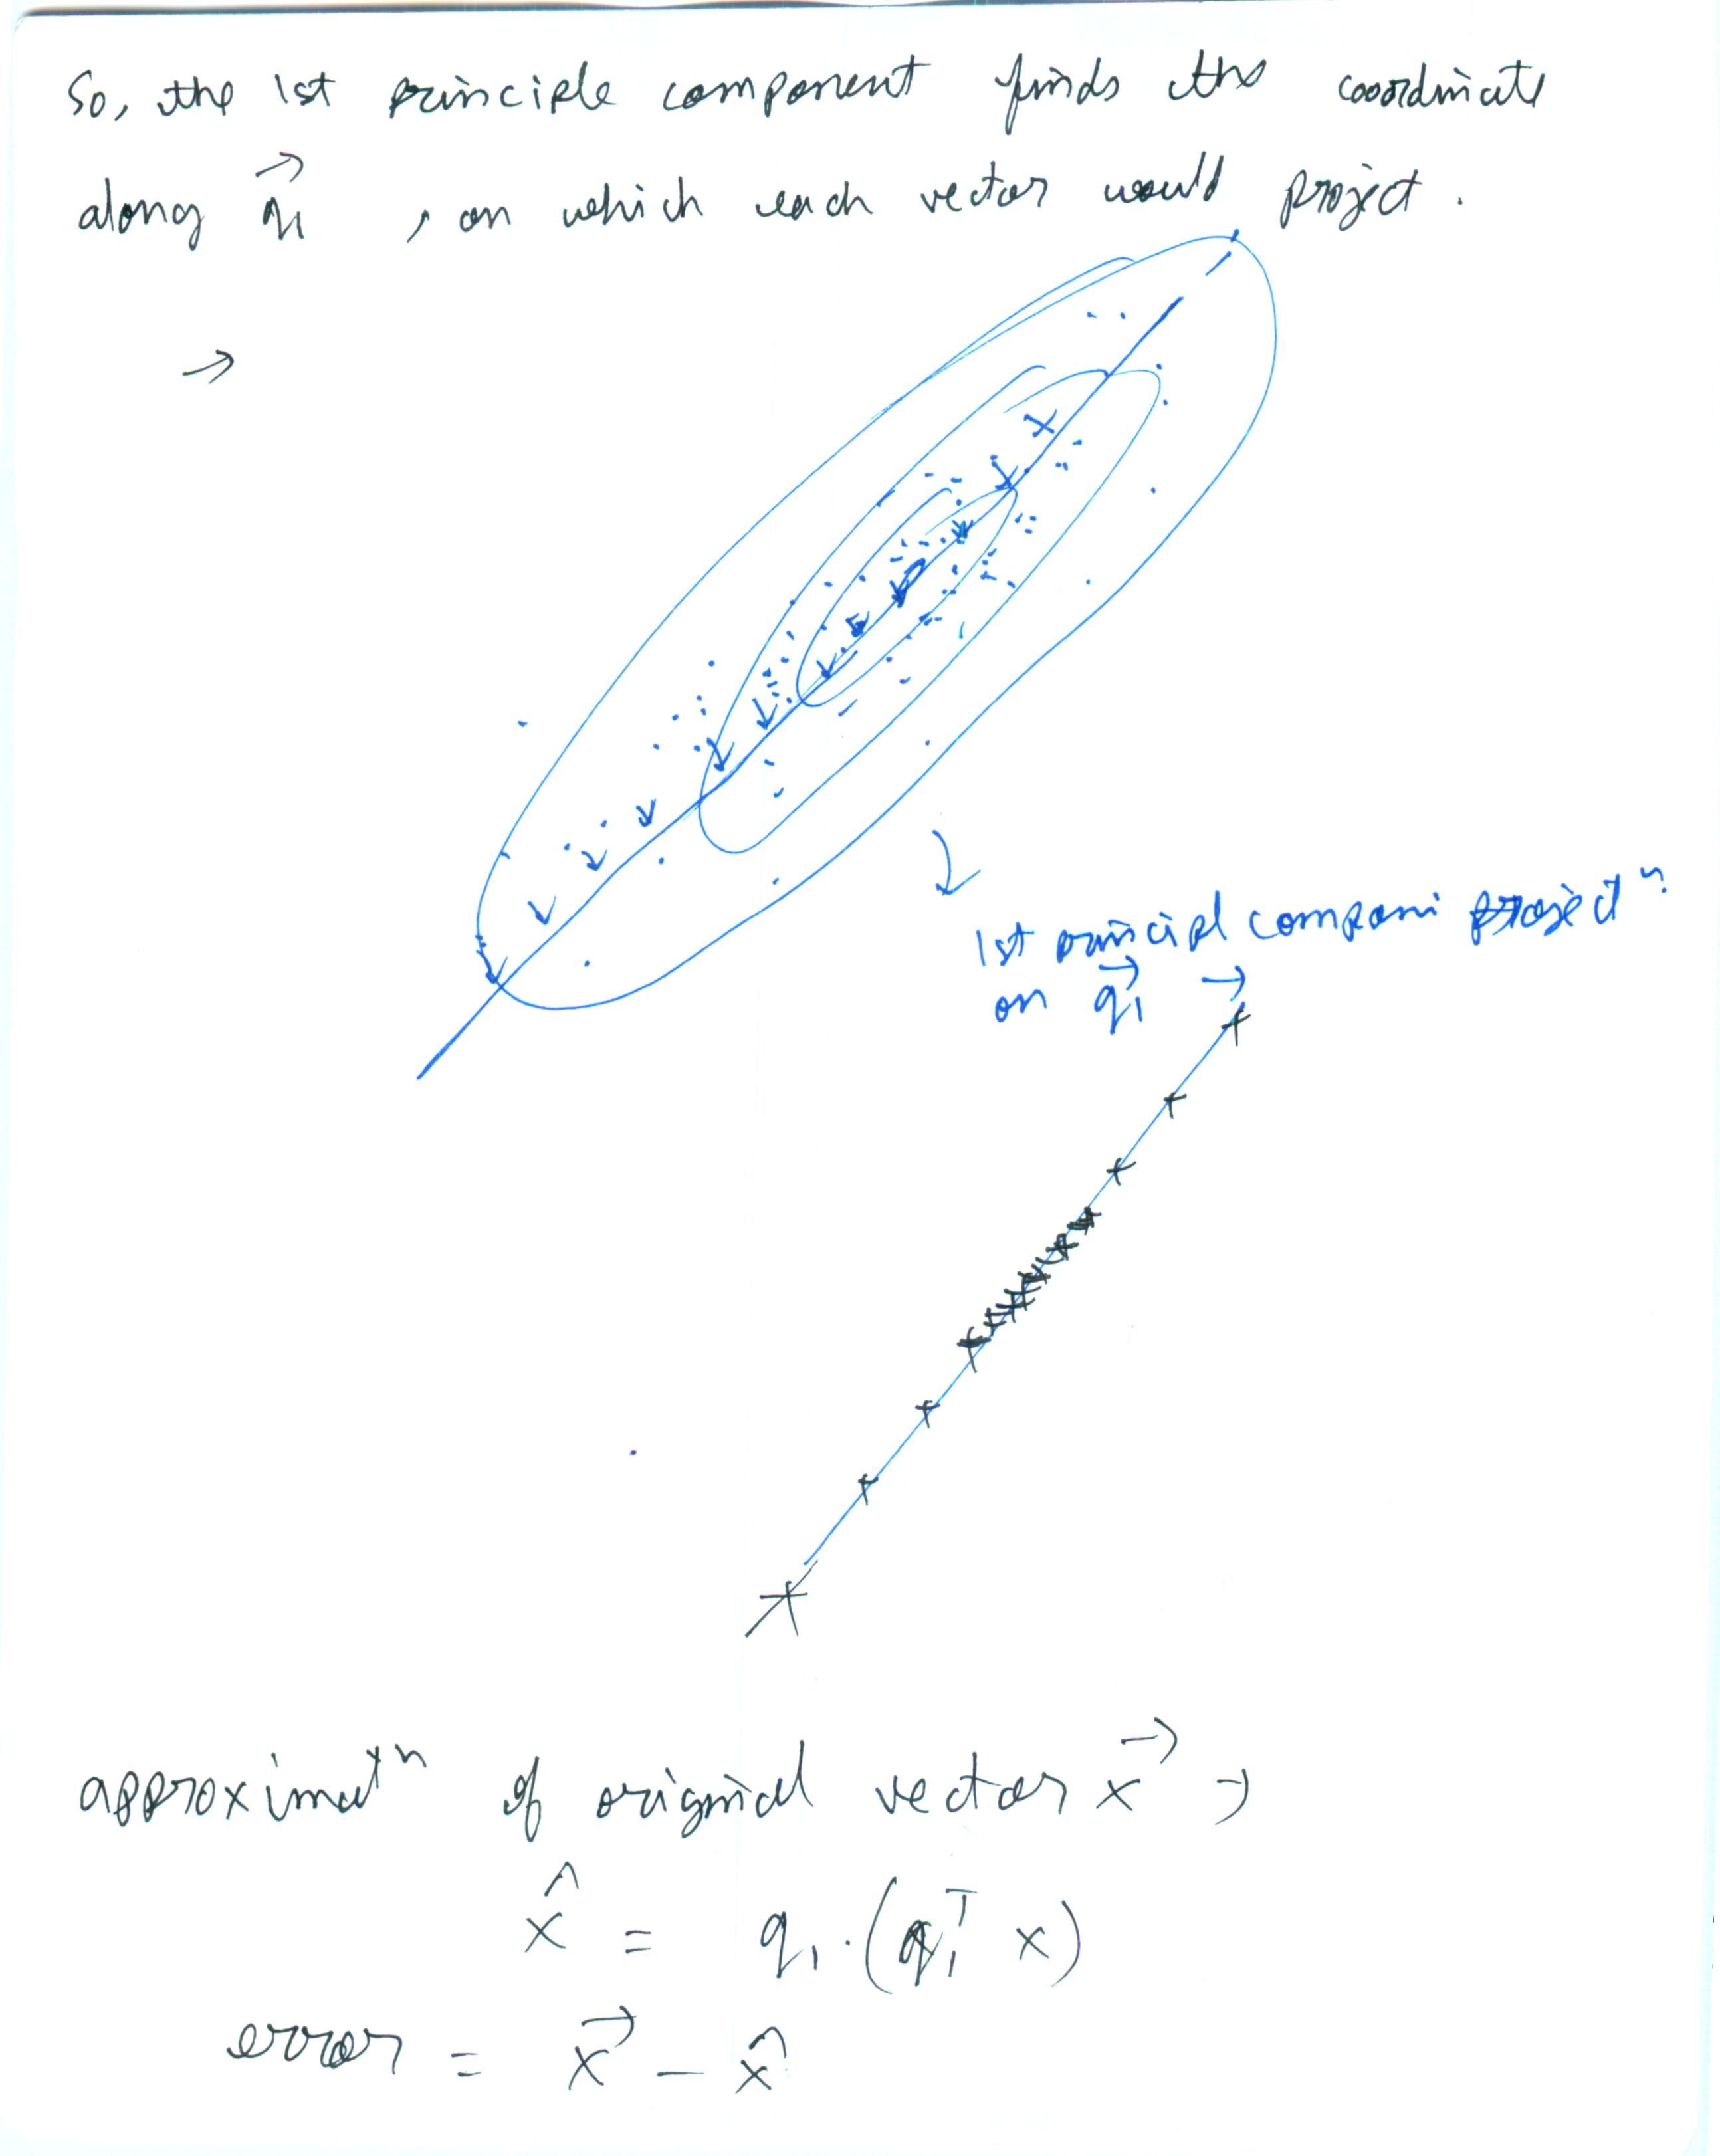 So, the 1st principle component finds the coordinate
along q₁⃗ , on which each vector would project.
→
1st principl componi projectⁿ.
on q₁⃗ →
approximatⁿ of original vector x⃗ →
x̂ = q₁.(q₁ᵀ x)
error = x⃗ - x̂